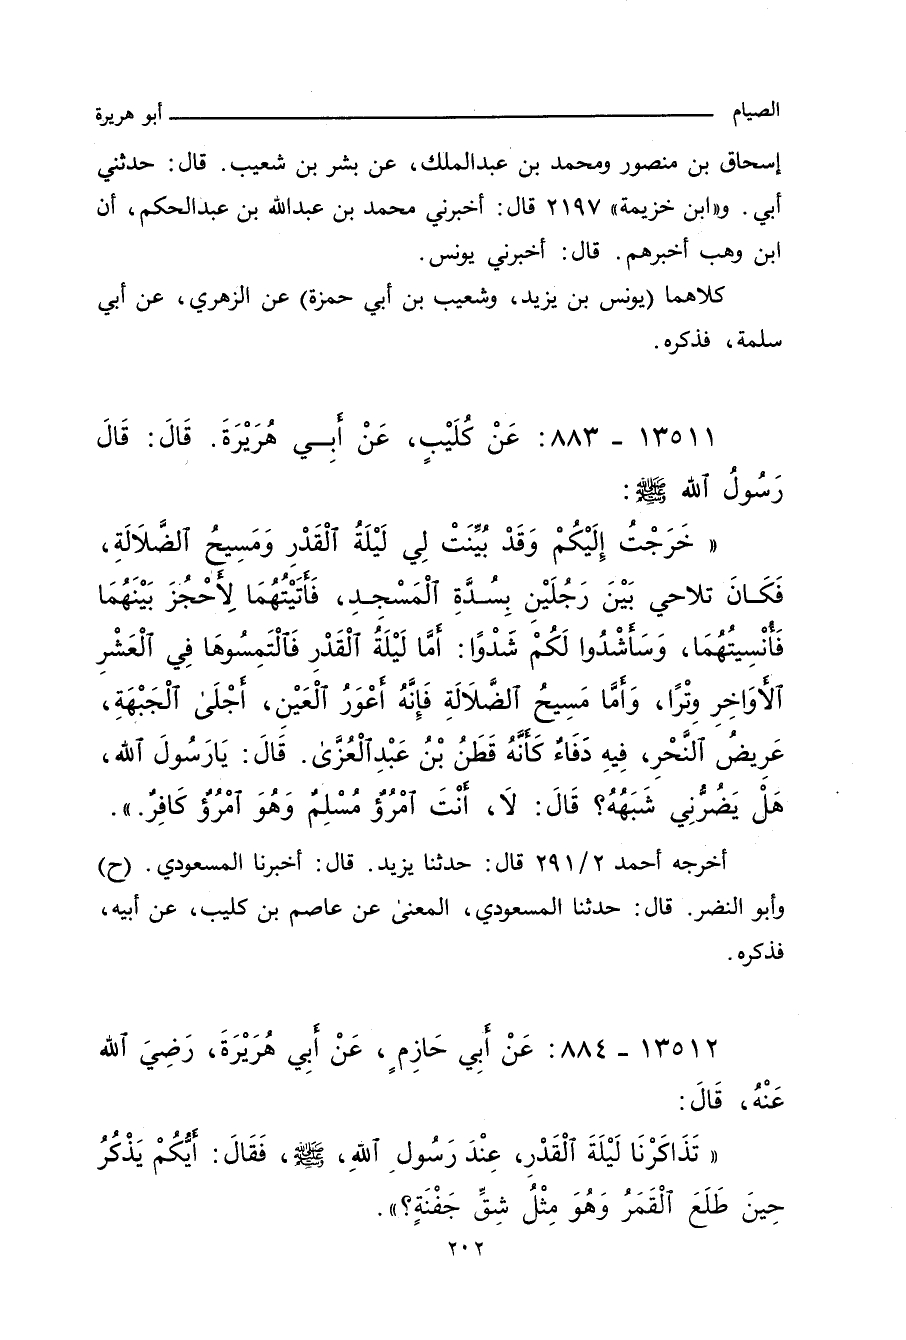 الصيام ـــــــــ أبو هريرة
إسحاق بن منصور ومحمد بن عبدالملك، عن بشر بن شعيب. قال: حدثني
أبي. و«ابن خزيمة» ٢١٩٧ قال: أخبرني محمد بن عبدالله بن عبدالحكم، أن
ابن وهب أخبرهم. قال: أخبرني يونس.
كلاهما (يونس بن يزيد، وشعيب بن أبي حمزة) عن الزهري، عن أبي
سلمة، فذكره.
١٣٥١١ - ٨٨٣: عَنْ كُلَيْبٍ، عَنْ أَبِي هُرَيْرَةَ. قَالَ: قَالَ
رَسُولُ ٱللهِ ﷺ:
« خَرَجْتُ إِلَيْكُمْ وَقَدْ بُيِّنَتْ لِي لَيْلَةُ ٱلْقَدْرِ وَمَسِيحُ ٱلضَّلَالَةِ،
فَكَانَ تلاحي بَيْنَ رَجُلَيْنِ بِسُدَّةِ ٱلْمَسْجِدِ، فَأَتَيْتُهُمَا لِأَحْجُزَ بَيْنَهُمَا
فَأُنْسِيتُهُمَا، وَسَأَشْدُوا لَكُمْ شَدْوًا: أَمَّا لَيْلَةُ ٱلْقَدْرِ فَٱلْتَمِسُوهَا فِي ٱلْعَشْرِ
ٱلأَوَاخِرِ وِتْرًا، وَأَمَّا مَسِيحُ ٱلضَّلَالَةِ فَإِنَّهُ أَعْوَرُ ٱلْعَيْنِ، أَجْلَىٰ ٱلْجَبْهَةِ،
عَرِيضُ ٱلنَّحْرِ، فِيهِ دَفَاءٌ كَأَنَّهُ قَطَنُ بْنُ عَبْدِٱلْعُزَّىٰ. قَالَ: يَارَسُولَ ٱللهِ،
هَلْ يَضُرُّنِي شَبَهُهُ؟ قَالَ: لَا، أَنْتَ ٱمْرُؤٌ مُسْلِمٌ وَهُوَ ٱمْرُؤٌ كَافِرٌ.».
أخرجه أحمد ٢٩١/٢ قال: حدثنا يزيد. قال: أخبرنا المسعودي. (ح)
وأبو النضر. قال: حدثنا المسعودي، المعنىٰ عن عاصم بن كليب، عن أبيه،
فذكره.
١٣٥١٢ - ٨٨٤: عَنْ أَبِي حَازِمٍ، عَنْ أَبِي هُرَيْرَةَ، رَضِيَ ٱللهُ
عَنْهُ، قَالَ:
« تَذَاكَرْنَا لَيْلَةَ ٱلْقَدْرِ، عِنْدَ رَسُولِ ٱللهِ، ﷺ، فَقَالَ: أَيُّكُمْ يَذْكُرُ
حِينَ طَلَعَ ٱلْقَمَرُ وَهُوَ مِثْلُ شِقِّ جَفْنَةٍ؟».
٢٠٢